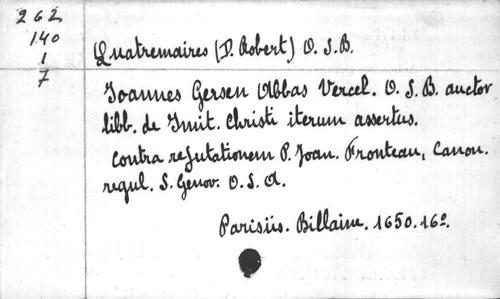 262
140
1
7
Quatremaires (D. Robert) O. S. B.
Joannes Gersen Abbas Vercel. O. S. B. auctor
libb. de Imit. Christi iterum assertus.
Contra refutationem P. Joan. Fronteau, Canon.
regul. S. Genov. O. S. A.
Parisiis. Billaine. 1650. 16º.